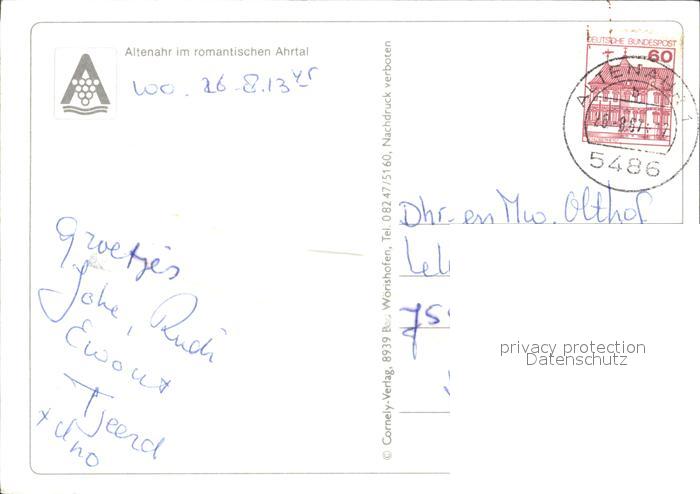 Altenahr im romantischen Ahrtal
woo. 26-8.13 yr
Groetjes
Joke, Rudi
Ewout
Tjeerd
+ Uno
© Cornely-Verlag, 8939 Bad Wörishofen, Tel. 08247/5160, Nachdruck verboten
DEUTSCHE BUNDESPOST
60
ALTENAHR 1
26.-8.87.-17
5486
Dhr. en Mw. Olthof
75
privacy protection
Datenschutz